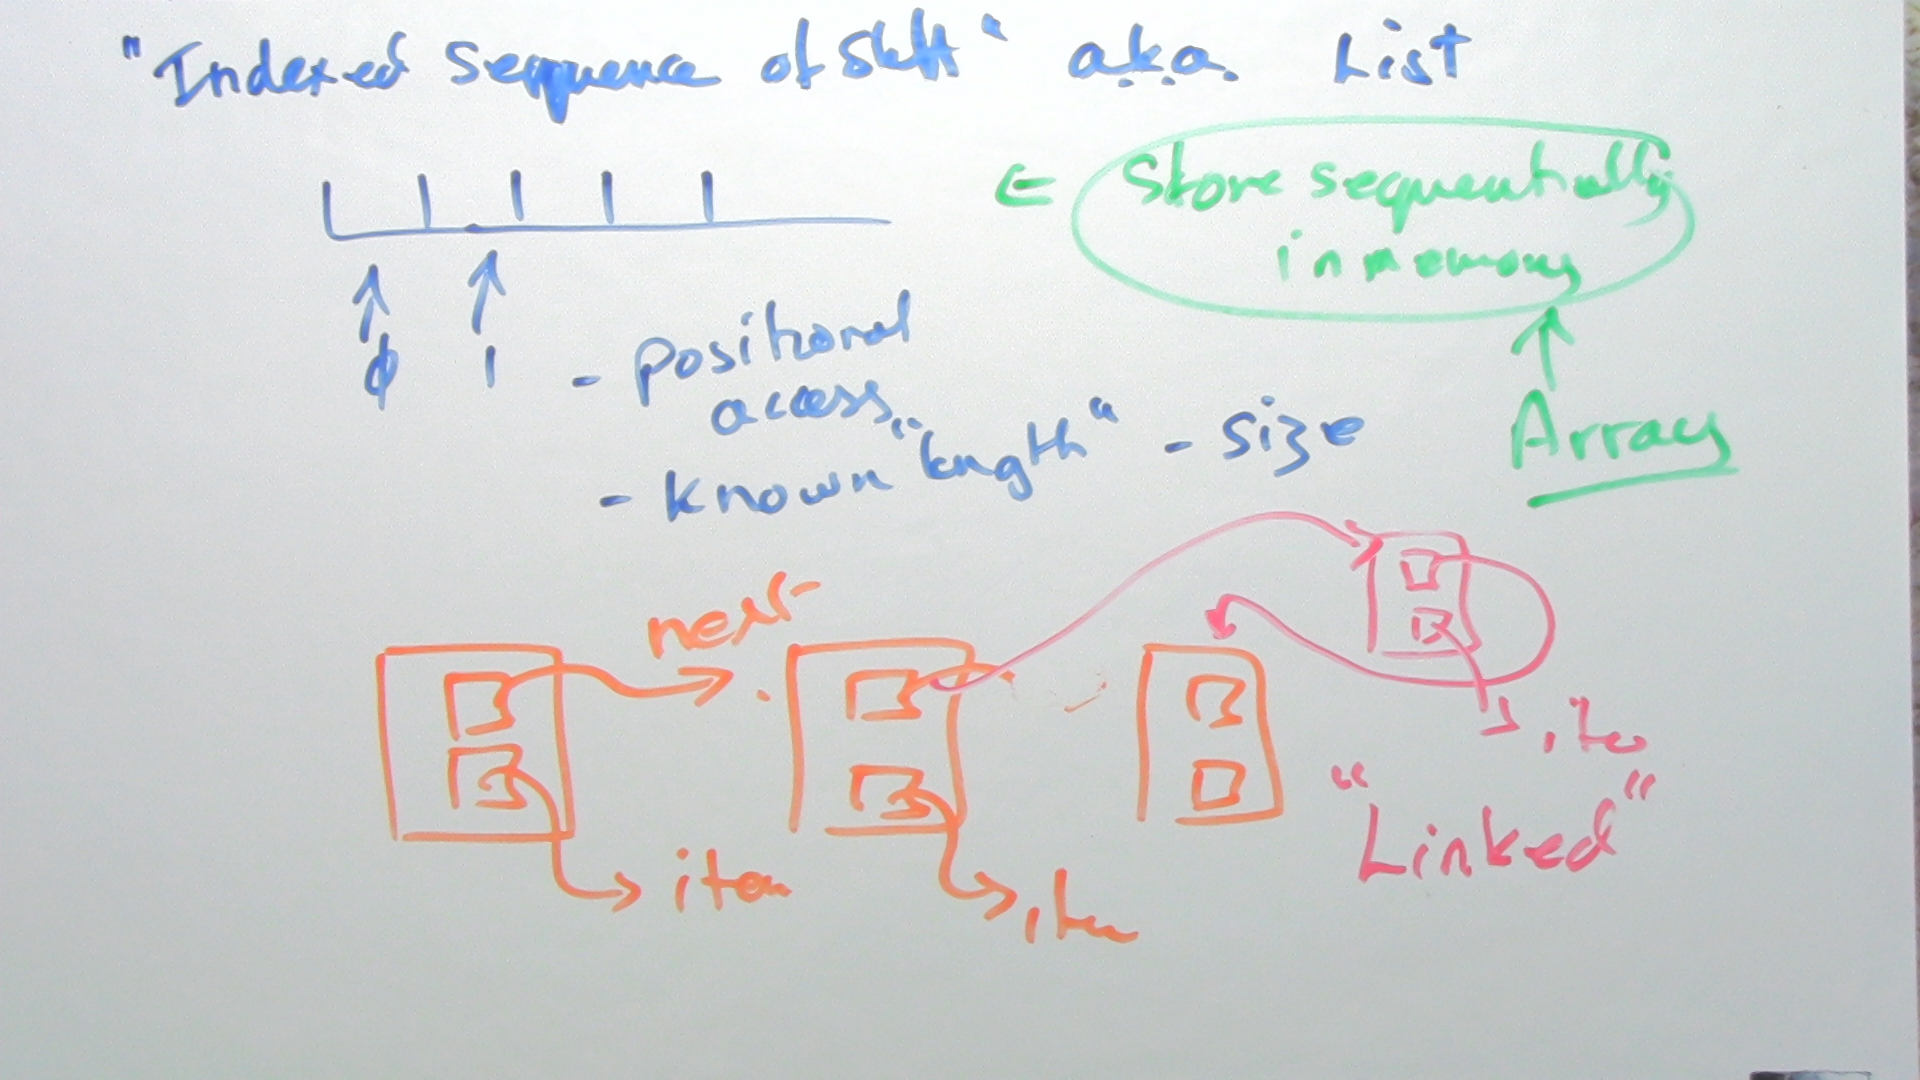 "Indexed Sequence of Stuff" a.k.a. List
← Store sequentially
in memory
Ø 1
- positional
access
- known "length" - size
Array
next
item
item
item
"Linked"